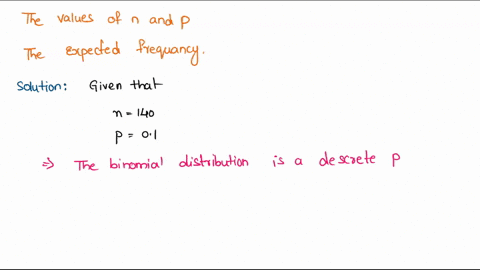 The values of n and p
The expected frequancy.
Solution: Given that
n = 140
p = 0.1
⇒ The binomial distribution is a descrete p